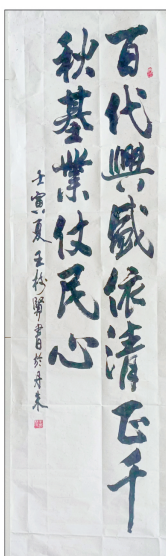 百代興盛依清正千
秋基業仗民心
壬寅夏王於賢書於丹東